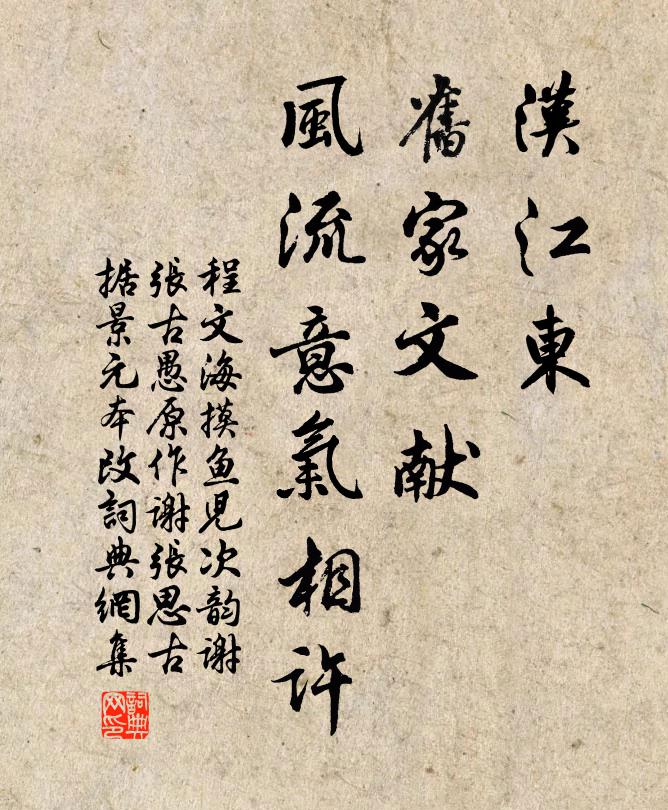 漢江東
舊家文献
風流意氣相許
程文海摸魚児次韵謝
張古愚原作謝張思古
据景元本改詞典網集
詞典网印